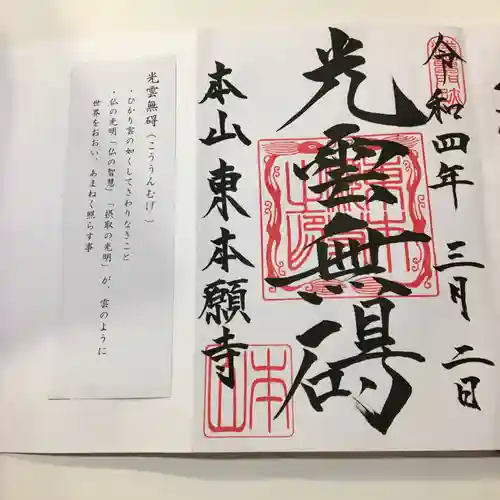 令和四年 三月 二日
光雲無碍
本山東本願寺
光雲無碍(こううんむげ)
・ひかり雲の如くしてさわりなきこと
・仏の光明「仏の智慧」「摂取の光明」が、雲のように
世界をおおい、あまねく照らす事
本山